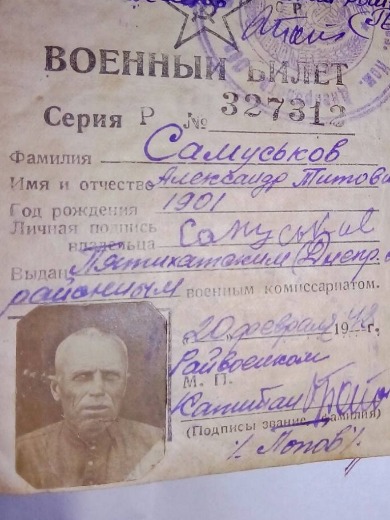 ВОЕННЫЙ БИЛЕТ
Серия Р № 327313
Фамилия Самуськов
Имя и отчество Александр Титови
Год рождения 1901
Личная подпись
владельца
Выдан Пятихатским (Днепр.
районным военным комиссариатом.
„20 февраля 19 г.
Райвоенком
М. П.
Капитан
(Подписы звание, фамилия)
/ Попов /